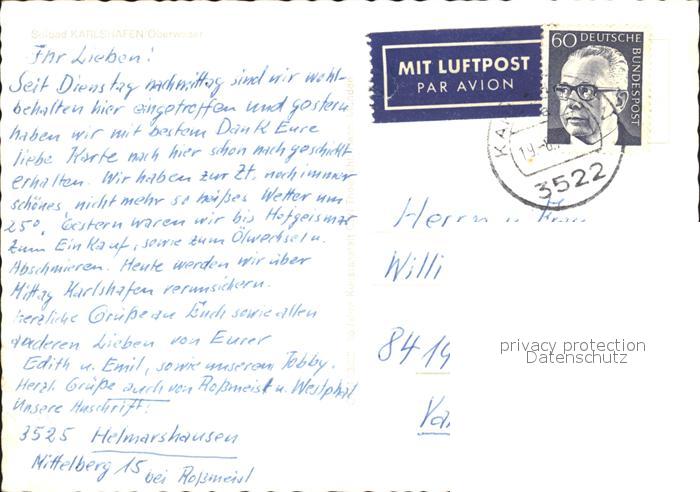 Solbad KARLSHAFEN/Oberweser
Ihr Lieben!
Seit Dienstag nachmittag sind wir wohl-
behalten hier eingetroffen und gestern
haben wir mit bestem Dank Eure
liebe Karte nach hier schon nachgeschickt
erhalten. Wir haben zur Zt. noch immer
schönes nicht mehr so heißes Wetter um
25°. Gestern waren wir bis Hofgeismar
zum Einkauf, sowie zum Ölwechsel u.
Abschmieren. Heute werden wir über
Mittag Karlshafen verunsichern.
Herzliche Grüße an Euch sowie allen
anderen Lieben von Eurer
Edith u. Emil, sowie unserem Tobby.
Herzl. Grüße auch von Roßmeisl u. Westphal
Unsere Anschrift:
3525 Helmarshausen
Mittelberg 15
bei Roßmeisl
MIT LUFTPOST
PAR AVION
60 DEUTSCHE
BUNDESPOST
3522
Herrn u. Frau
Willi
8419
privacy protection
Datenschutz